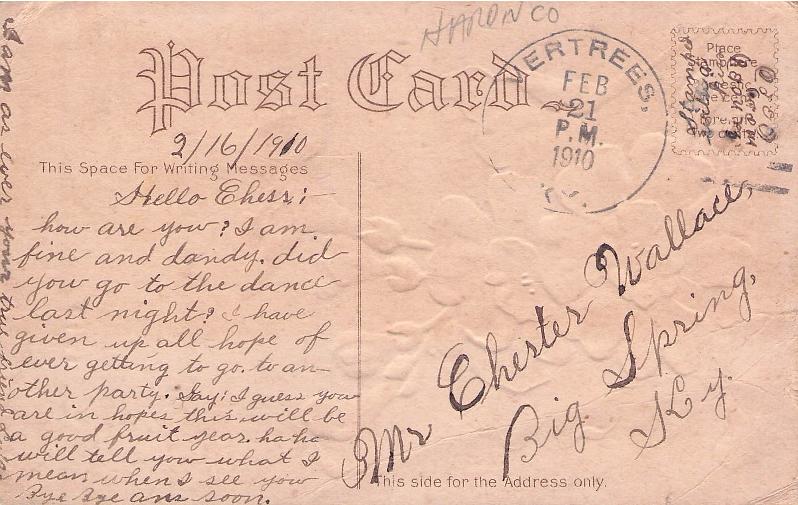 HARDIN CO
Post Card
VERTREES,
FEB
21
P.M.
1910
KY.
Place
2/16/1910
This Space For Writing Messages
Hello Chess:-
how are you? I am
fine and dandy. did
you go to the dance
last night? I have
given up all hope of
ever getting to go. to an-
other party. Say! I guess you
are in hopes this will be
a good fruit year. ha ha
will tell you what I
mean when I see you
Bye Bye ans soon.
I am as ever your true friend
Mr Chester Wallace,
Big Spring,
Ky.
This side for the Address only.